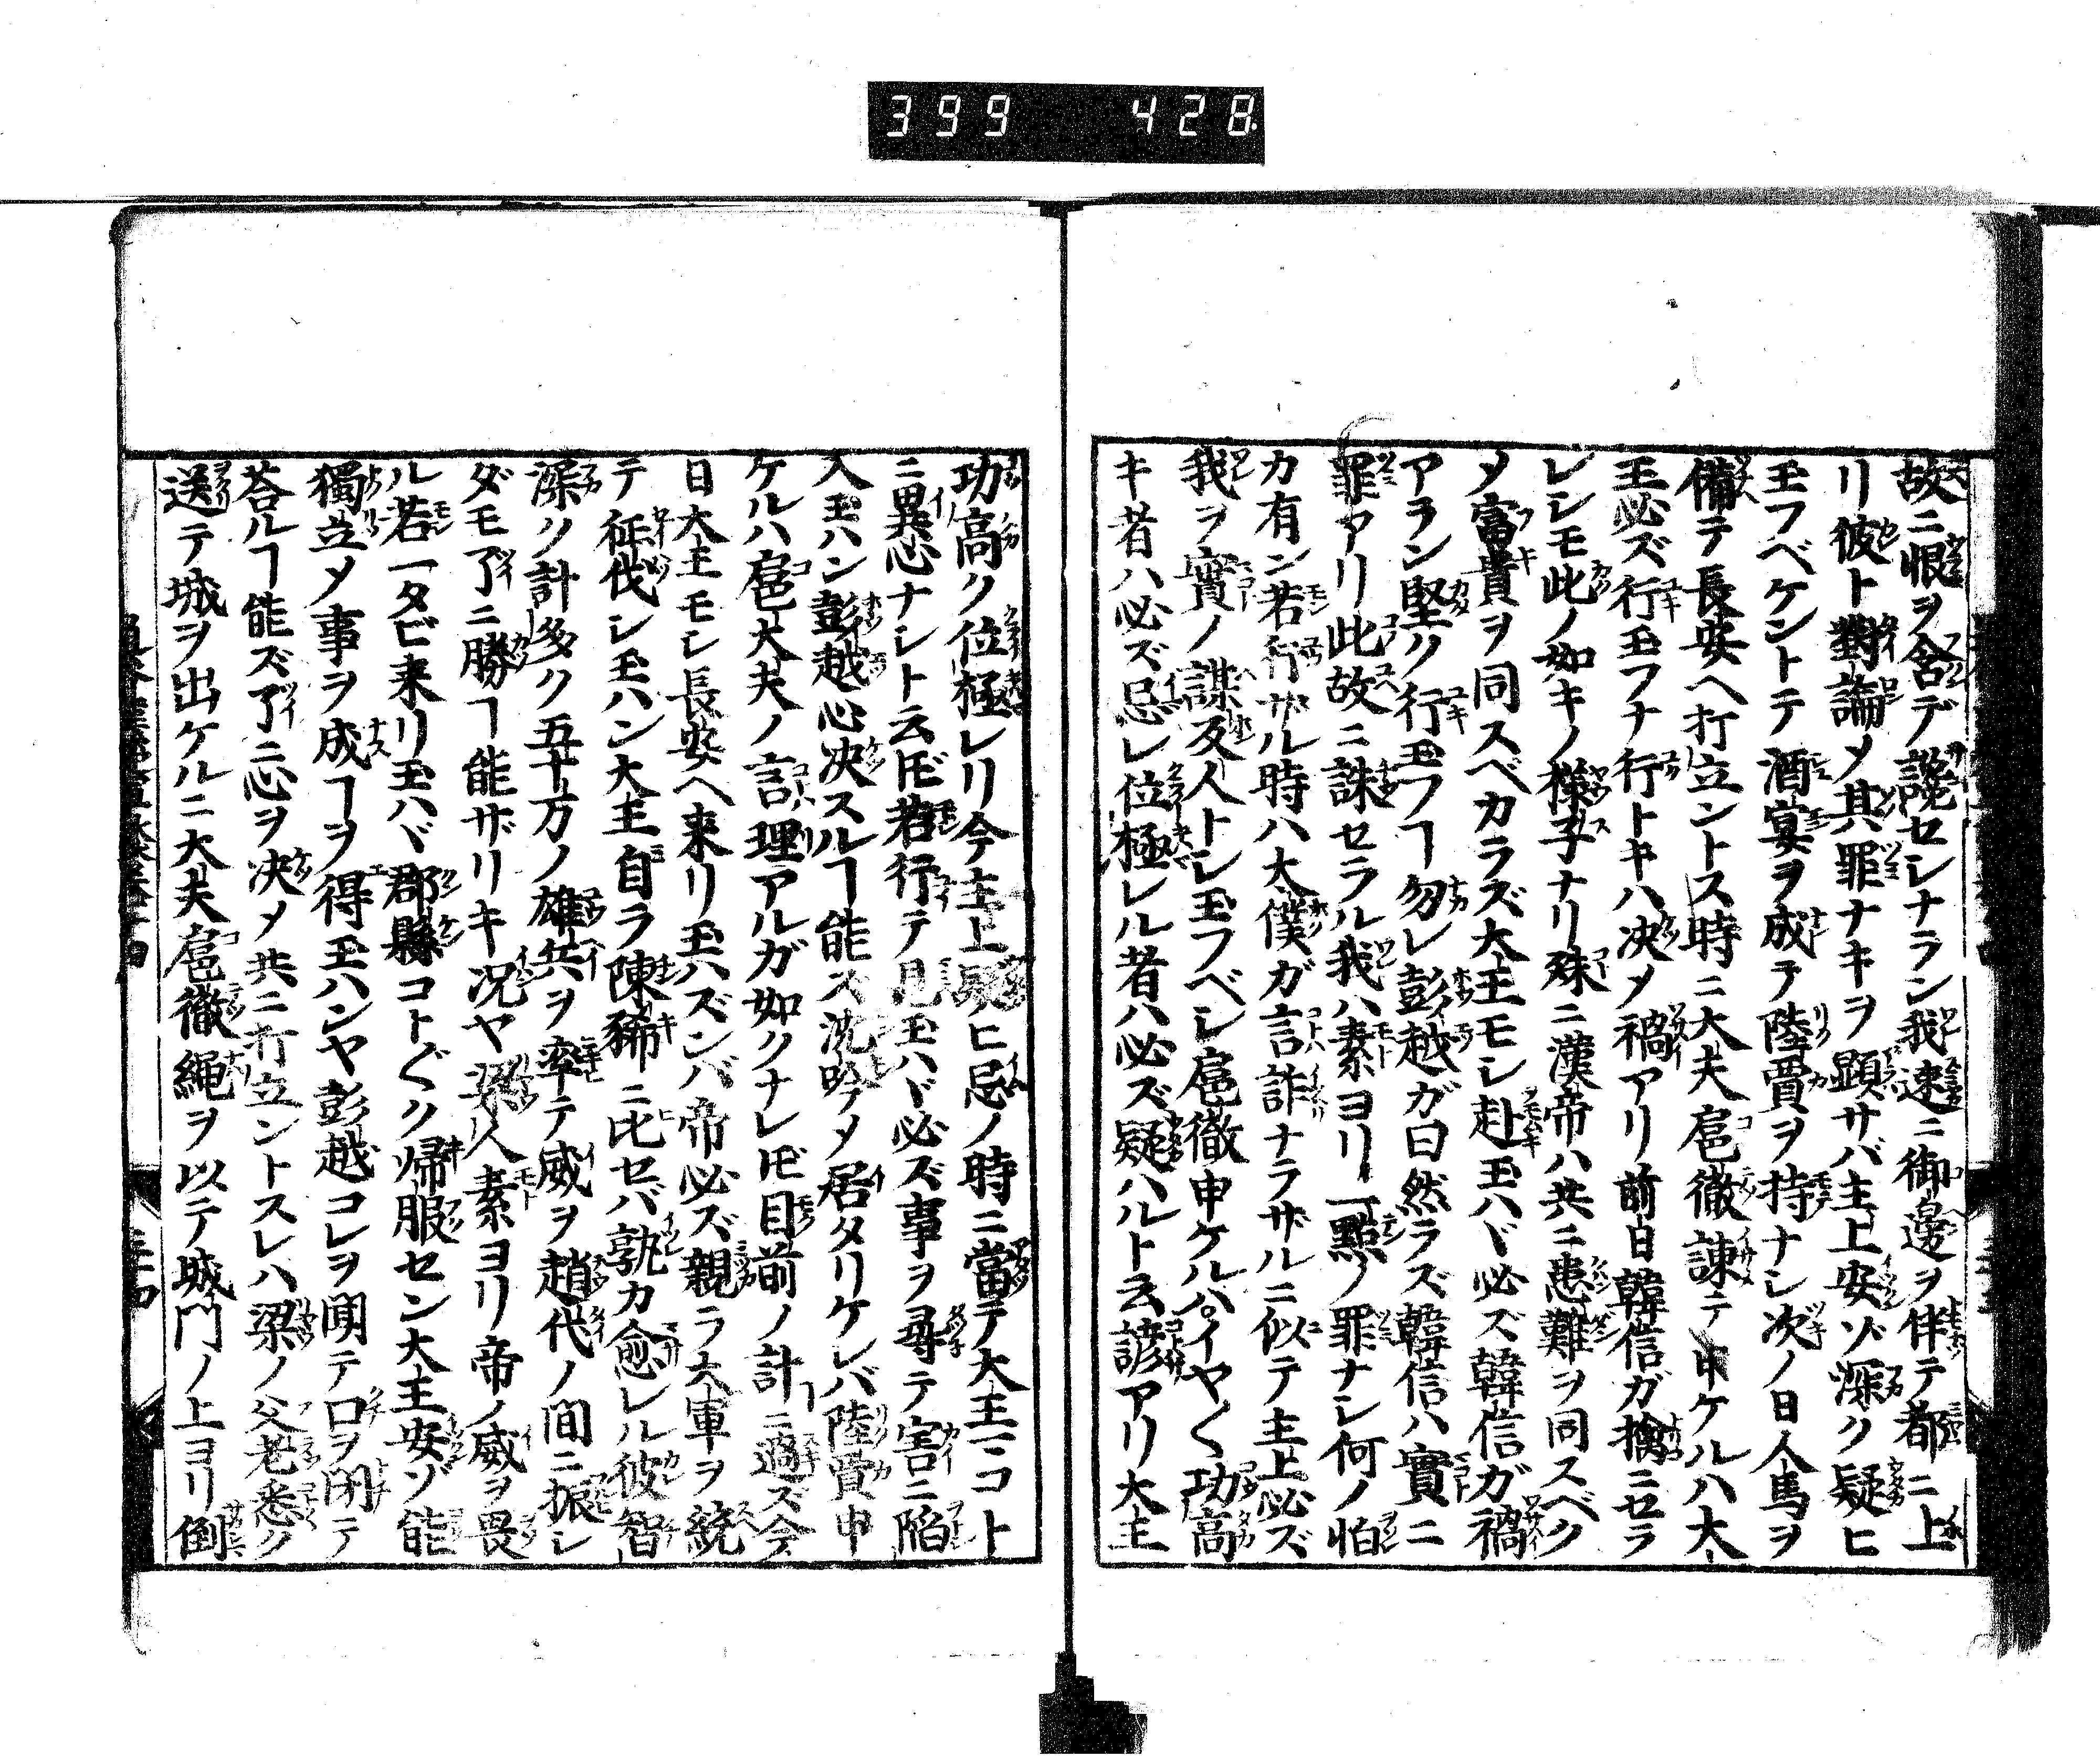 399 428
故ニ恨ヲ含デ讒セシナラン我速ニ御邊ヲ伴テ都ニ上
リ彼ト對論〆其罪ナキヲ顕サバ主上安ゾ深ク疑ヒ
玉フベケントテ酒宴ヲ成テ陸賈ヲ持ナシ次ノ日人馬ヲ
備テ長安ヘ打立ントス時ニ大夫扈徹諌テ申ケルハ大
王必ズ行玉フナ行トキハ决〆禍アリ前日韓信ガ擒ニセラ
レシモ此ノ如キノ様子ナリ殊ニ漢帝ハ共ニ患難ヲ同スベク
〆富貴ヲ同スベカラズ大王モシ赴玉ハヾ必ズ韓信ガ禍
アラン堅ク行玉フヿ勿レ彭越ガ曰然ラズ韓信ハ實ニ
罪アリ此故ニ誅セラル我ハ素ヨリ一點ノ罪ナシ何ノ怕
カ有ン若行ザル時ハ大僕ガ言詐ナラザルニ似テ主上必ズ
我ヲ實ノ謀反人トシ玉フベシ扈徹申ケルハイヤ〱功高
キ者ハ必ズ忌レ位極レル者ハ必ズ疑ハルト云諺アリ大王
功高ク位極レリ今主上疑ヒ忌ノ時ニ當テ大王一コト
ニ異心ナシト云𪜈若行テ見玉ハヾ必ズ事ヲ尋テ害ニ陥
入玉ハン彭越心决スルヿ能ズ沈吟〆居タリケレバ陸賈申
ケルハ扈大夫ノ言理アルガ如クナレ𪜈目前ノ計ニ過ズ今
日大王モシ長安ヘ来リ玉ハズンバ帝必ズ親ラ大軍ヲ統
テ征伐シ玉ハン大王自ラ陳豨ニ比セバ孰カ愈レル彼智
深ク計多ク五十万ノ雄兵ヲ率テ威ヲ趙代ノ間ニ振シ
ダモ了ニ勝ヿ能ザリキ况ヤ梁人素ヨリ帝ノ威ヲ畏
ル若一タビ来リ玉ハヾ郡縣コト〲ク帰服セン大王安ゾ能
獨立〆事ヲ成ヿヲ得玉ハンヤ彭越コレヲ聞テ口ヲ閉テ
荅ルヿ能ズ了ニ心ヲ决〆共ニ打立ントスレハ梁ノ父老悉ク
送テ城ヲ出ケルニ大夫扈徹繩ヲ以テ城門ノ上ヨリ倒